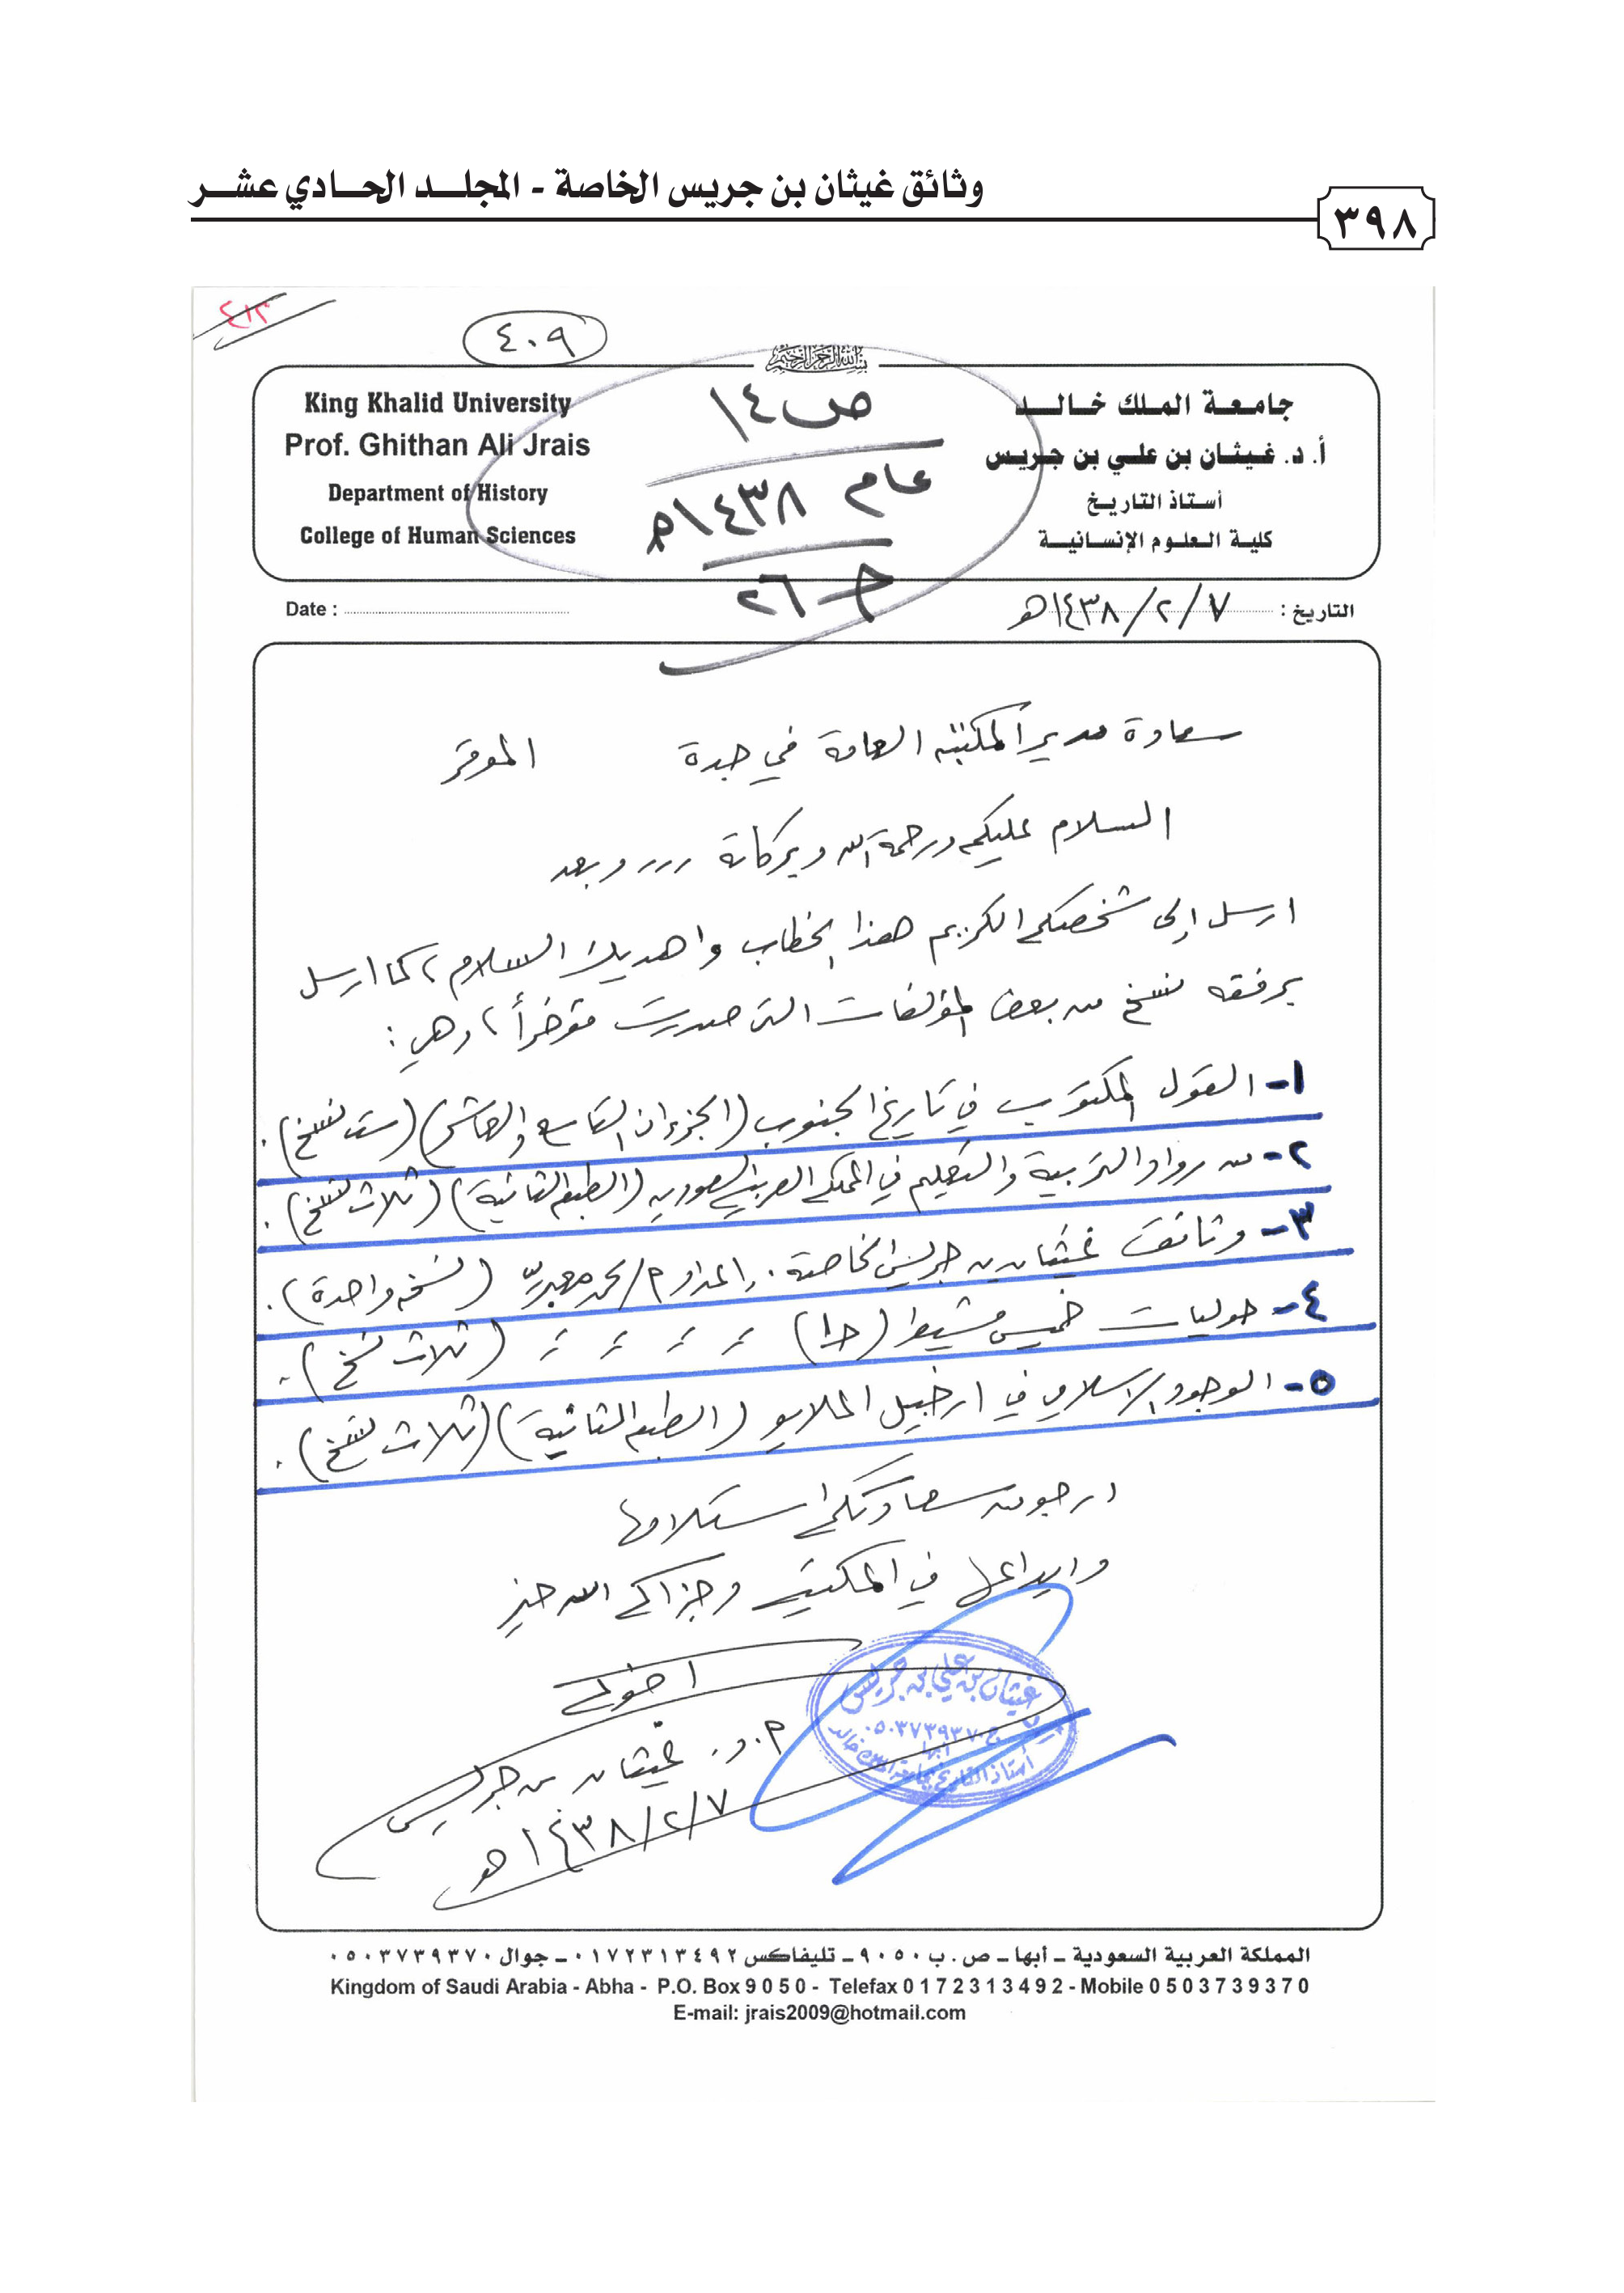 وثائق غيثان بن جريس الخاصة - المجلد الحادي عشر
٣٩٨
٤١٣
٤٠٩
بسم الله الرحمن الرحيم
جامعة الملك خالد
أ. د. غيثان بن علي بن جريس
أستاذ التاريخ
كلية العلوم الإنسانية
King Khalid University
Prof. Ghithan Ali Jrais
Department of History
College of Human Sciences
ص١٤
عام ١٤٣٨هـ
جـ٢٦
التاريخ : ٧/٢/١٤٣٨هـ
Date :
سعادة مدير المكتبة العامة في جدة الموقر
السلام عليكم ورحمة الله وبركاته ،،، وبعد
ارسل إلى شخصكم الكريم هذا الخطاب واهديك السلام، كما ارسل
برفقه نسخ من بعض المؤلفات التي صدرت مؤخراً، وهي:
١- القول المكتوب في تاريخ الجنوب (الجزءان التاسع والعاشر) (ست نسخ).
٢- من رواد التربية والتعليم في المملكة العربية السعودية (الطبعة الثانية) (ثلاث نسخ).
٣- وثائق غيثان بن جريس الخاصة. إعداد م/محمد معبر (نسخة واحدة).
٤- حوليات خميس مشيط (جـ١) = = = = (ثلاث نسخ).
٥- الوجود الإسلامي في ارخبيل الملايو (الطبعة الثانية) (ثلاث نسخ).
ارجو من سعادتكم استلامها
وايداعها في المكتبة وجزاكم الله خير
اخوكم
أ.د. غيثان بن جريس
٧/٢/١٤٣٨هـ
غيثان بن علي بن جريس
ج ٠٥٠٣٧٣٩٣٧٠
أبها
أستاذ التاريخ بجامعة الملك خالد
المملكة العربية السعودية – أبها – ص . ب ٩٠٥٠ – تليفاكس ٠١٧٢٣١٣٤٩٢ – جوال ٠٥٠٣٧٣٩٣٧٠
Kingdom of Saudi Arabia - Abha - P.O. Box 9 0 5 0 - Telefax 0 1 7 2 3 1 3 4 9 2 - Mobile 0 5 0 3 7 3 9 3 7 0
E-mail: jrais2009@hotmail.com